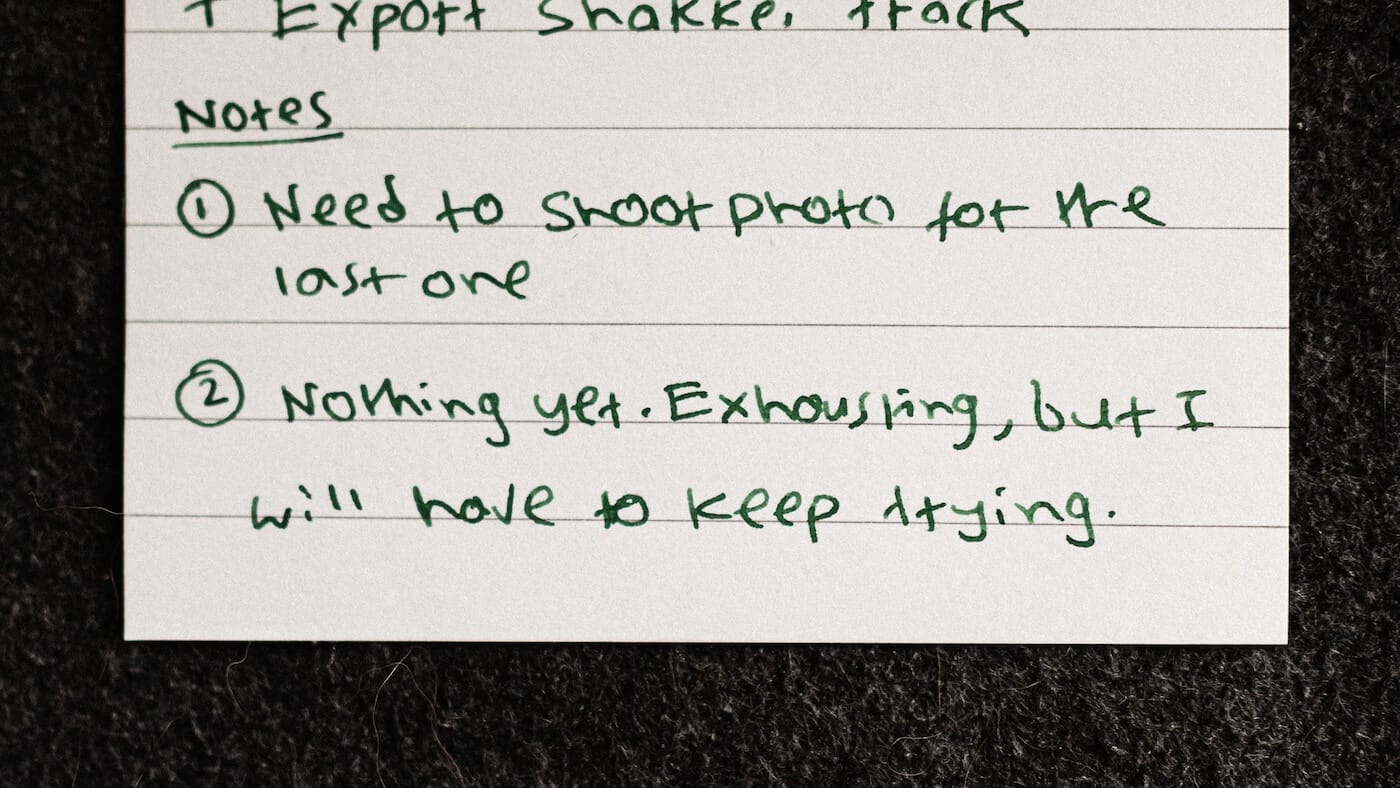 + Export Shakker track
Notes
① Need to shoot photo for the
last one
② Nothing yet. Exhousting, but I
will have to keep trying.